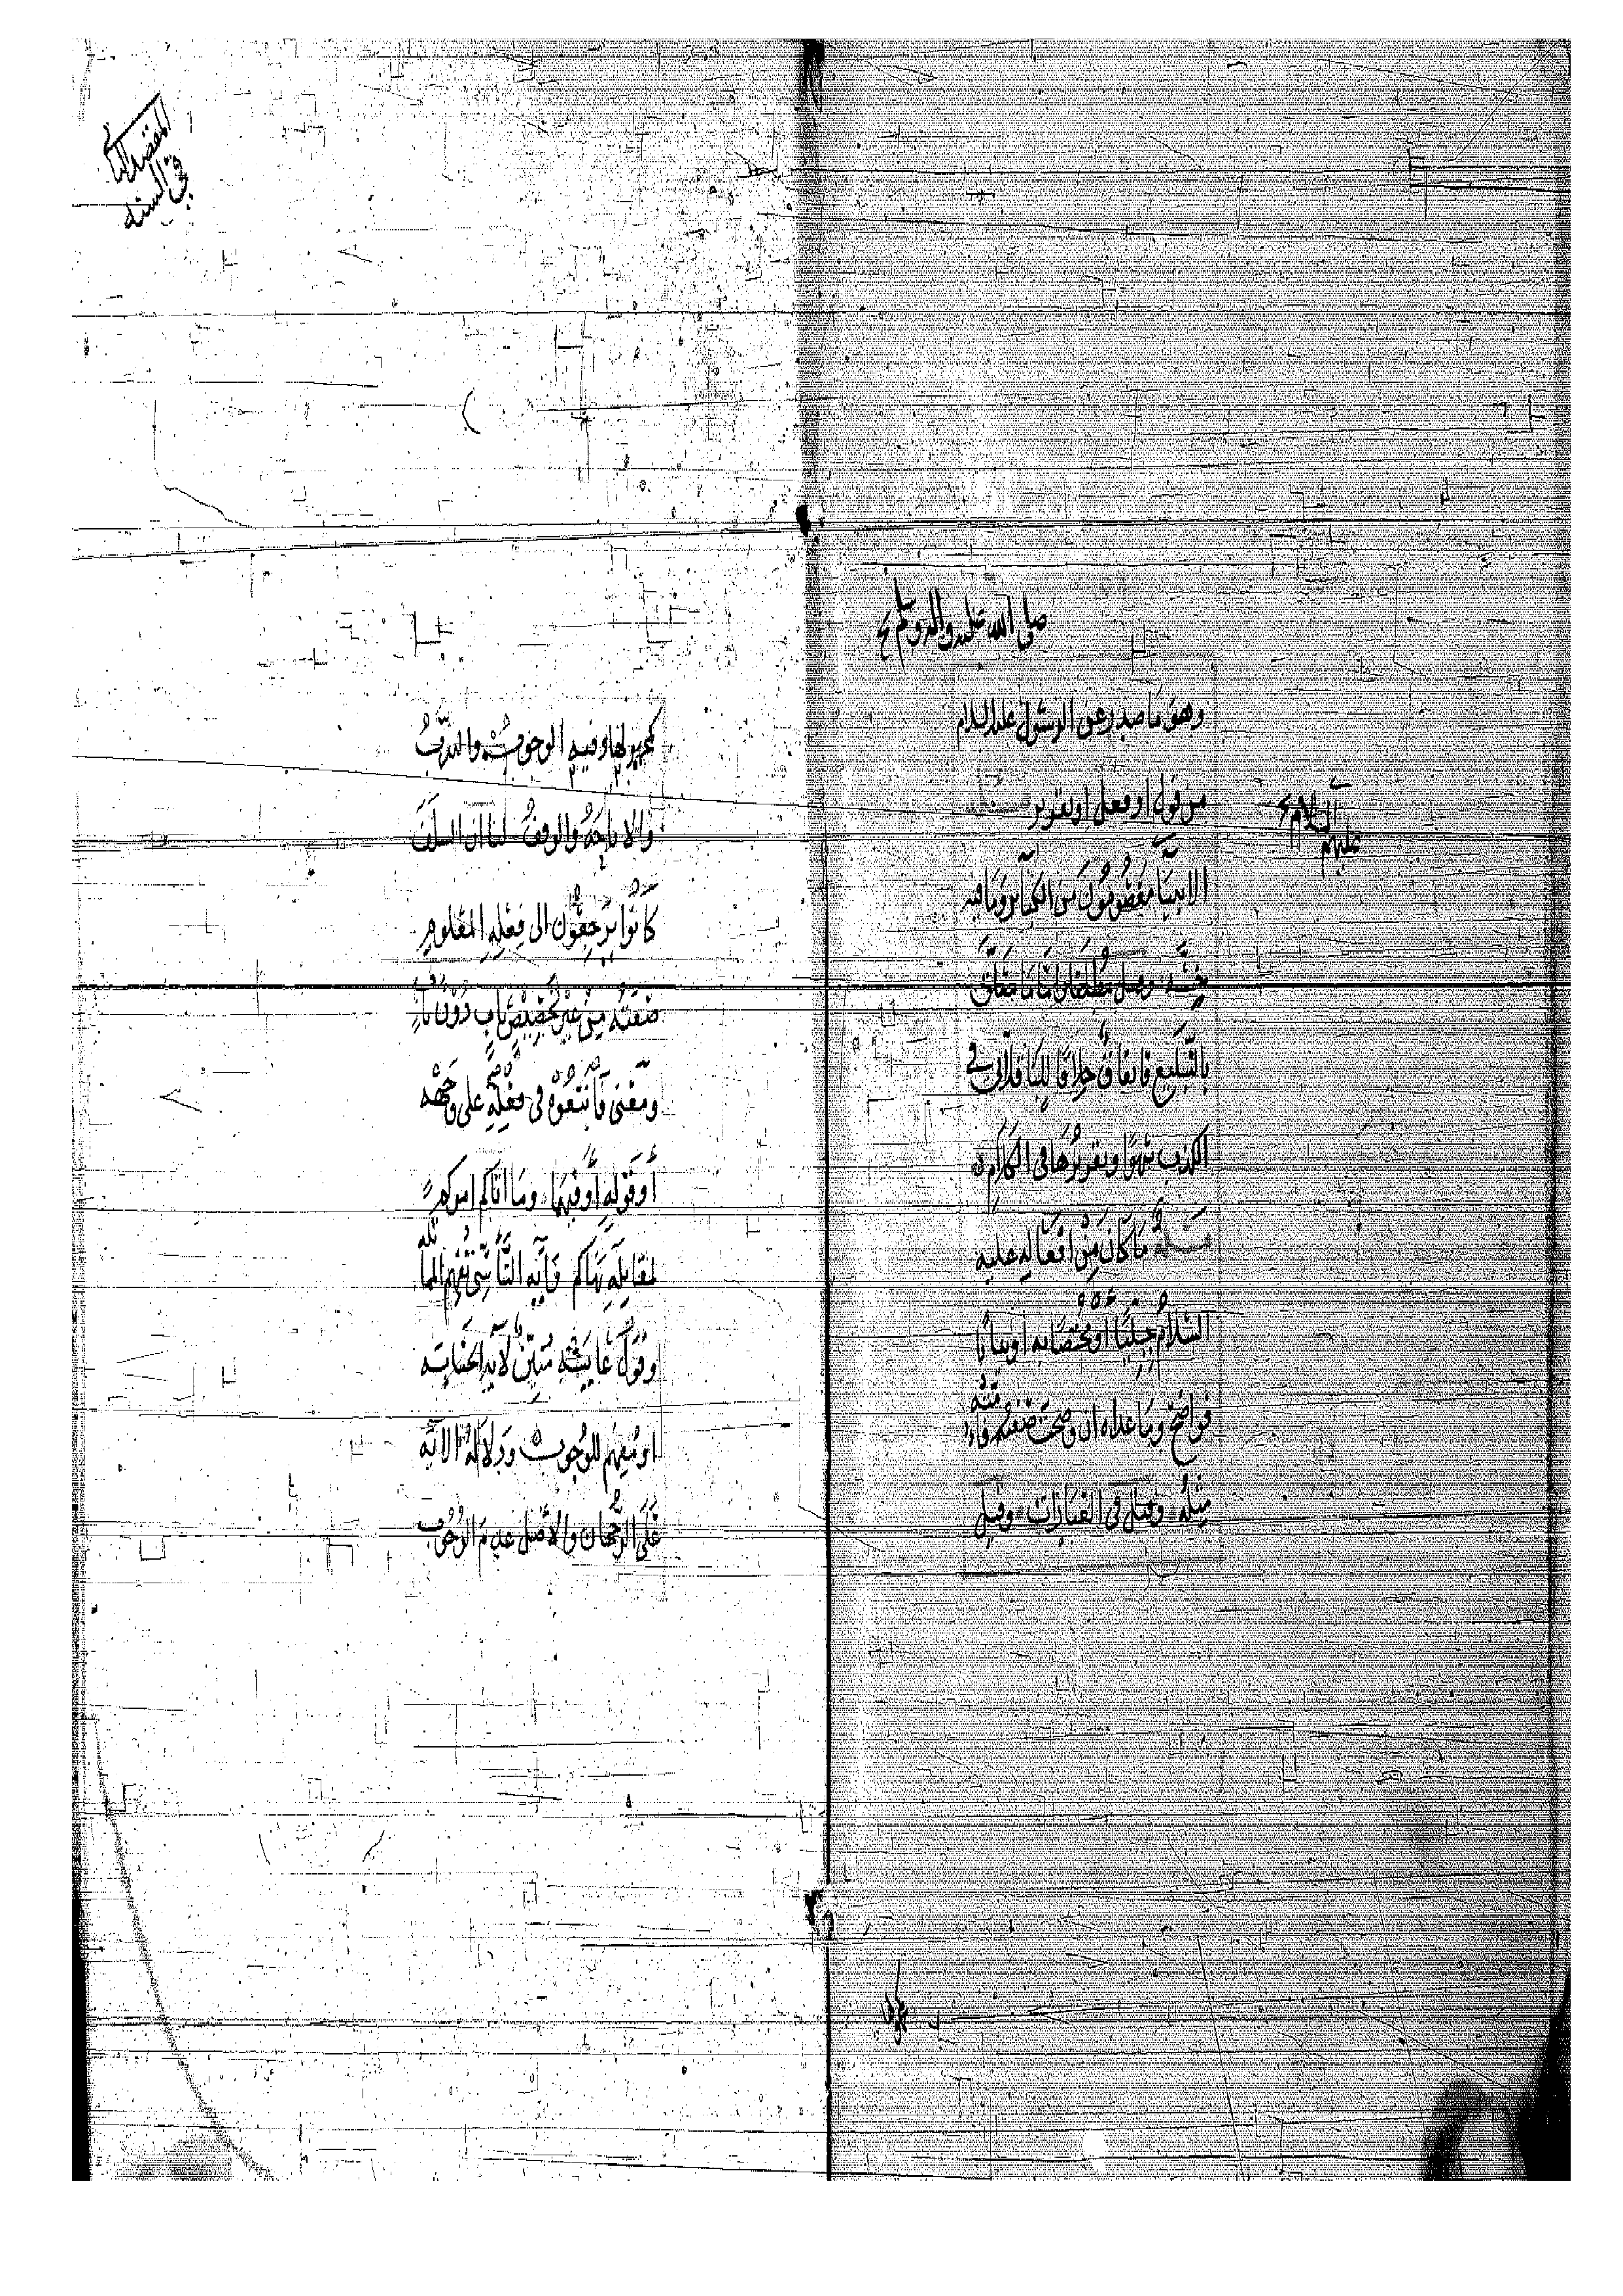 صلى الله عليه واله وسلم
وهو ما صدر عن الرسول عليه السلام
من قول او فعل او تقرير
عليهم السلام
الانبيا معصومون من الكبائر وما فيه
خسة وقيل مطلقا اما ما تعلق
بالتبليغ فاتفاق خلافا للباقلاني في
الكذب سهوا وتقريرها في الكلام
مسئلة ما كان من افعاله عليه
السلام جبليا او مختصا به او بيانا
فواضح وما عداه ان وضحت صفته فا
منه
مثله وقيل في العبارات وقيل
المقصد الثاني
في السنه
كمجهولها وفيه الوجوب والندب
والاباحة والوقف لنا ان السلف
كانوا يرجعون الى فعله المعلوم
صفته من غير تخصيص باب دون باب
ومعنى فاتبعوه في فعله على وجهه
او قوله او فيهما وما اتاكم امركم
لمقابلة نهاكم فاية التاسي تفهم المما
ثله
وقول عايشه مبين لاية الجنابه
او مفهم للوجوب ودلالة الاية
على الرجحان والاصل عدم الوجوب